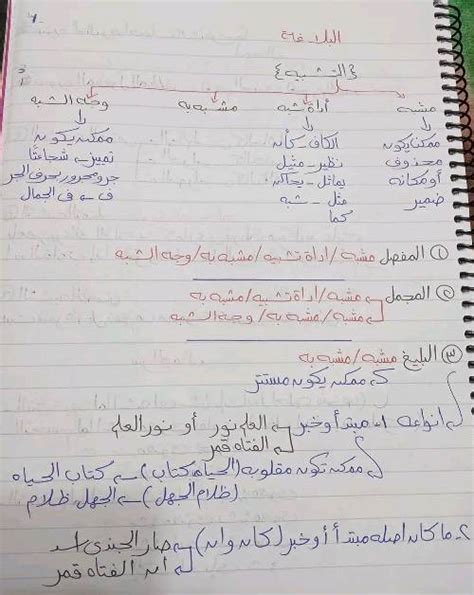 البلاغة
{التشبيه}
مشبه
أداة شبه
مشبه به
وجه الشبه
ممكن يكون
محذوف
أو مكانه
ضمير
الكاف - كأن
نظير - مثيل
يماثل - يحاكى
مثل - شبه
كما
ممكن يكون
تمييز شجاعتا
جر ومجرور بحرف الجر
فى فى الجمال
① المفصل مشبه / اداة تشبيه / مشبه به / وجه الشبه
② المجمل مشبه / اداة تشبيه / مشبه به
مشبه / مشبه به / وجه الشبه
③ البليغ مشبه / مشبه به
ممكن يكون مستتر
انواعه ١- مبتدأ وخبر العلم نور أو نور العلم
الفتاه قمر
ممكن تكون مقلوبه (الحياه كتاب) كتاب الحياه
(ظلام الجهل) الجهل ظلام
٢- ما كان اصله مبتدأ أو خبر (كان وان) صار الجندى اسد
ان الفتاه قمر